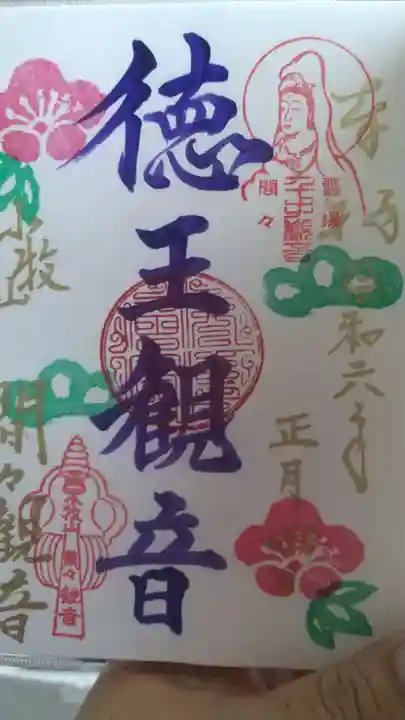 奉拝
令和六年
正月
徳王観音
小牧山
間々観音
霊場
間々
間々観音